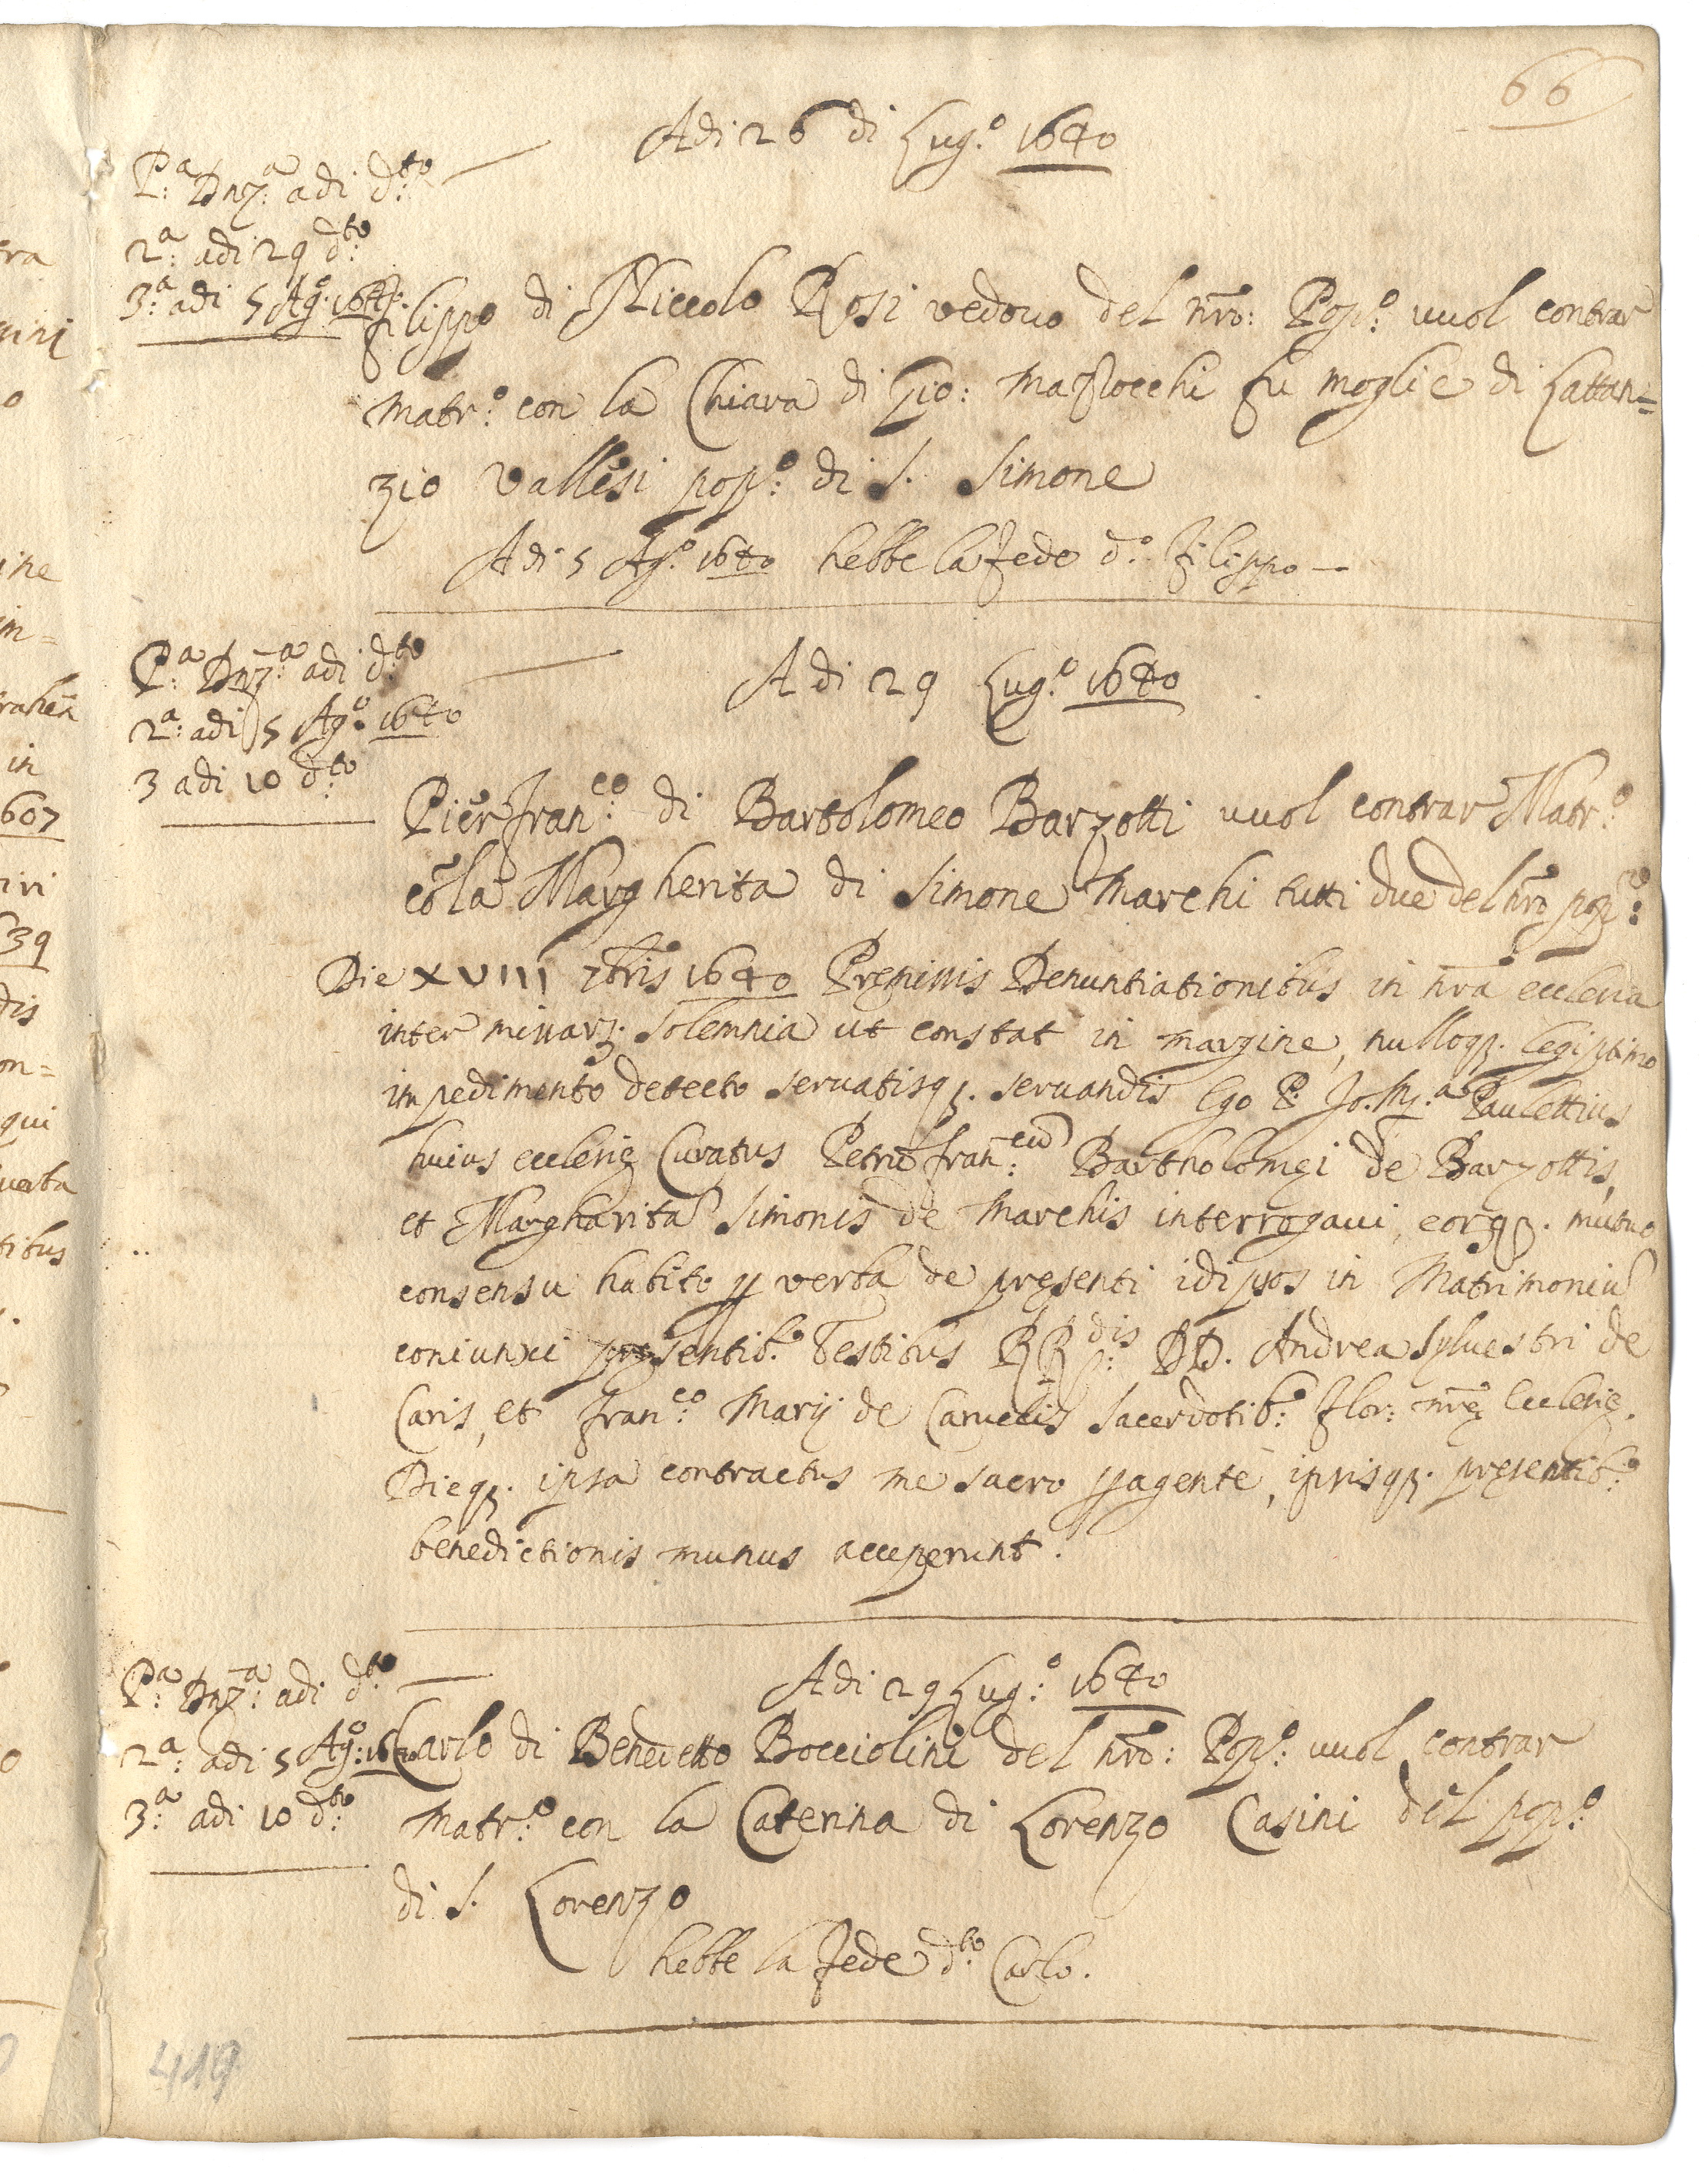 66
Adi 26 di Lug.º 1640
P.ª Dnz.ª adi d.to
2.ª adi 29 d.to
3.ª adi 5 Ag.º 1640.
Filippo di Niccolo Rosi vedovo del nr̃o: Pop.º vuol contrar
matr.º con la Chiara di Gio: Maflocchi fu moglie di Lattan=
zio Vallesi pop.º di S. Simone
Adi 5 Ag.º 1640 hebbe la fede d.º Filippo —
P.ª Dnz.ª adi d.to
2.ª adi 5 Ag.º 1640
3 adi 10 d.to
Adi 29 Lug.º 1640
Pier Fran.co di Bartolomeo Barzotti vuol contrar Matr.º
cõ la Margherita di Simone Marchi tutti due del nr̃o pop.º
Die XVIII 7bris 1640 Pręmissis Denuntiationibus in nr̃a ecclesia
inter missarꝫ. solemnia ut constat in margine, nulloqꝫ. legiptimo
impedimento detecto servatisqꝫ. servandis Ego P. Jo. M.ª Paulettius
huius ecclesię Curatus Petrũ fran.cũ Bartholomęi de Barzottis,
et Margharitã Simonis de Marchis interrogavi, eorꝫqꝫ. mutuo
consensu habito ꝑ verba de pręsenti idipsos in Matrimoniũ
coniunxi pręsentib.º Testibus RR.dis DD. Andrea Sylvestri de
Caris, et Fran.co Marij de Carnelis Sacerdotib.º Flor: nr̃ę Ecclesię.
Dieqꝫ. ipsa contractus me sacro ꝑagente, ipsisqꝫ. pręsentib.º
benedictionis munus acceperunt.
P.ª Dnz.ª adi d.to
2.ª adi 5 Ag.º: 1640
3.ª adi 10 d.to
Adi 29 Lug.º 1640
Carlo di Benedetto Bocciolini del nr̃o: Pop.º vuol contrar
matr.º con la Caterina di Lorenzo Casini del pop.º
di S. Lorenzo
hebbe la fede d.to Carlo.
419